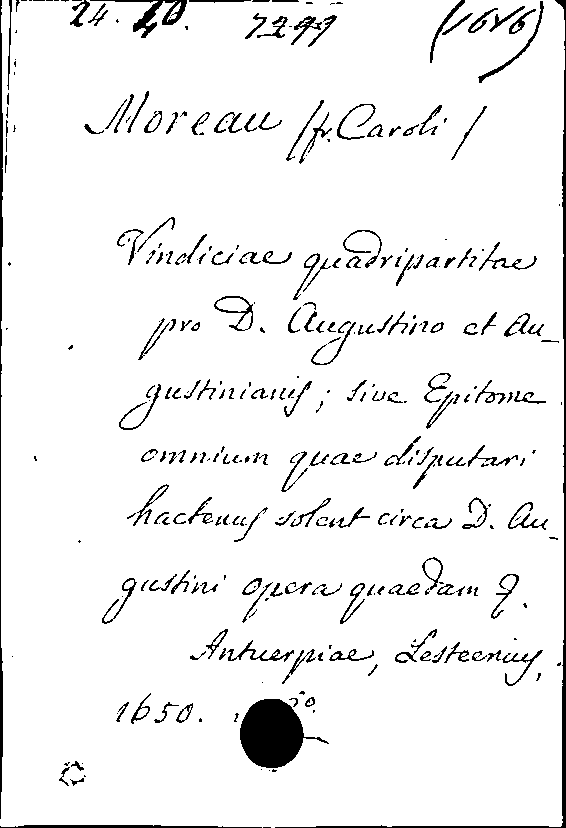 24. 40. 7299 (1616)
Moreau /fr. Caroli/
Vindiciae quadripartitae
pro D. Augustino et Au_
gustinianis; sive Epitome
omnium quae disputari
hactenus solent circa D. Au_
gustini opera quaedam &.
Antuerpiae, Lesteenius,
1650.